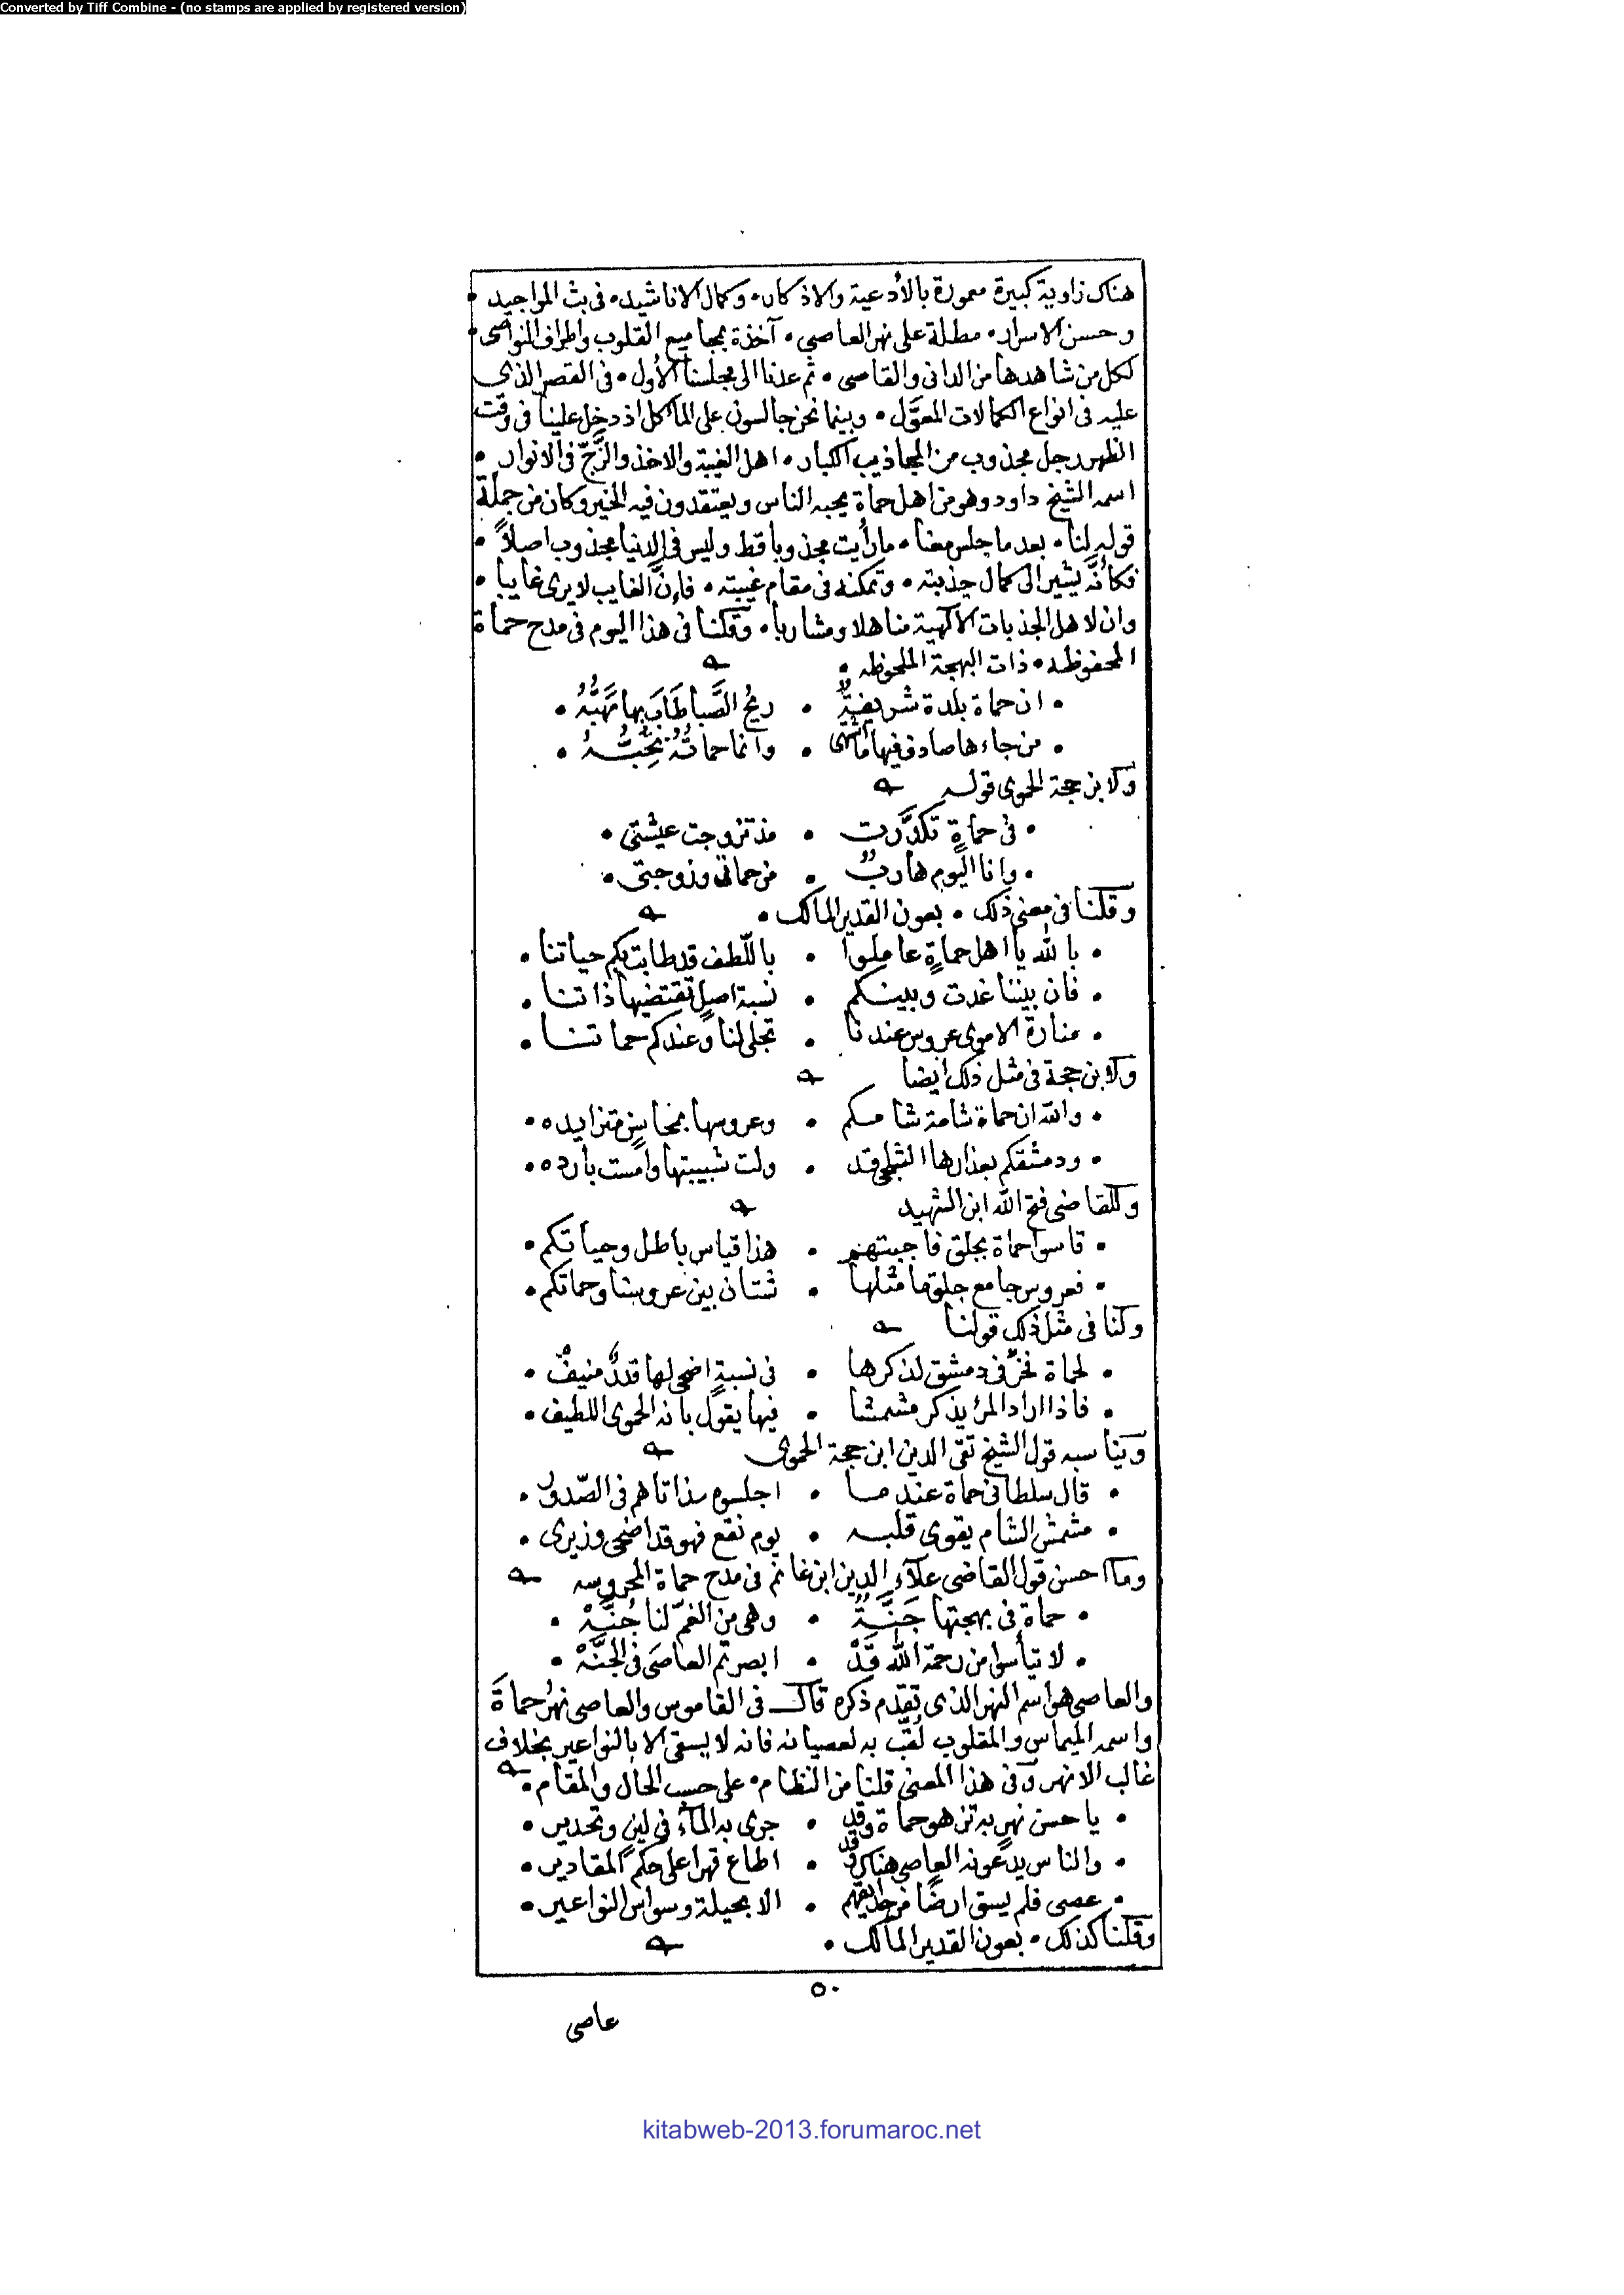 Converted by Tiff Combine - (no stamps are applied by registered version)
هناك زاوية كبيرة معمورة بالأدعية والاذكار • وكمال الاناشيد • فى بث المواجيد •
وحسن الاسرار • مطلة على نهر العاصي • آخذة بمجاميع القلوب واطراف النواصى •
لكل من شاهدها من الدانى والقاصى • ثم عدنا الى مجلسنا الأول • فى القصر الذى
عليه فى انواع الكمالات المعوَّل • وبينما نحن جالسون على المأكل اذ دخل علينا فى وقت
الظهر رجل مجذوب من المجاذيب الكبار • اهل الغيبة والاخذ والزَّجّ فى الانوار •
اسمه الشيخ داود وهو من اهل حماة يحبه الناس ويعتقدون فيه الخير وكان من جملة
قوله لنا • بعد ما جلس معنا • ما رأيت مجذوبا قط وليس فى الدنيا مجذوب اصلاً •
فكأنَّه يشير الى كمال جذبته • وتمكنه فى مقام غيبته • فإنَّ الغايب لا يرى غايبا •
وان لاهل الجذبات الالهية مناهلا ومشاربا • وقلنا فى هذا اليوم فى مدح حماة
المحفوظه • ذات البهجة الملحوظه •
• ان حماة بلدة شريفةٌ • ريحُ الصَّبا طَابَ بها مَهَبُّهُ •
• من جاءها صادف فيها ما اشتهى • وانما حماتُهُ تُحِبُّهُ •
ولابن حجة الحموى قوله
• فى حماةٍ تكدَّرت • مذ تزوجت عيشتى •
• وانا اليوم هاربٌ • من حماتى وزوجتى •
وقلنا فى معنى ذلك • بعون القدير المالك •
• بالله يا اهل حماةٍ عاملوا • باللّطف قد طابت بكم حياتنا •
• فان بيننا غدت وبينكم • نسبة اصل تقتضيها ذاتنا •
• منارة الاموى عروس عندنا • تجلى لنا وعندكم حماتنا •
ولابن حجة فى مثل ذلك ايضا
• والله ان حماة شامة شامكم • وعروسها بمحاسن متزايده •
• ودمشقكم بعذارها الثلجى قد • ولت شبيبتها وامست بارده •
وللقاضى فتح الله ابن الشهيد
• قاسوا حماة بجلق فاجبتهم • هذا قياس باطل وحياتكم •
• فعروس جامع جلق ما مثلها • شتان بين عروسنا وحماتكم •
ولنا فى مثل ذلك قولنا
• لحماة فخرٌ فى دمشق لذكرها • فى نسبةٍ اضحى لها قدرٌ منيفٌ •
• فاذا اراد المرؤ يذكر مشمشا • فيها يقول بانه الحموى اللطيف •
ويناسبه قول الشيخ تقى الدين ابن حجة الحموى
• قال سلطانى حماة عندما • اجلسوه هم فى الصّدورِ •
• مشمش الشام يقوى قلبه • يوم نقع فهو قد اضحى وزيرى •
وما احسن قول القاضى علآء الدين ابن غانم فى مدح حماة المحروسه
• حماة فى بهجتها جَنَّةٌ • وهى من الغمّ لنا جُنَّةْ •
• لا تيأسوا من رحمة الله قَدْ • ابصرتم العاصىَ فى الجنَّهْ •
والعاصى هو اسم النهر الذى تقدم ذكره قال فى القاموس والعاصى نهرُ حماةَ
واسمه الميماس والمقلوب لُقّبَ به لعصيانه فانه لا يسقى الا بالنواعير بخلاف
غالب الانهر وفى هذا المعنى قلنا من النظام • على حسب الحال والمقام •
• يا حسن نهرٍ به تزهو حماة وقد • جرى به المآء فى لينٍ وتحدير •
• والناس يدعونه العاصي هناك وقد • اطاع قهرا على حكم المقادير •
• عصى فلم يسق ارضًا من حدايقهم • الا بحيلة وسواس النواعير •
وقلنا كذلك • بعون القدير المالك •
٥٠
عاصى
kitabweb-2013.forumaroc.net